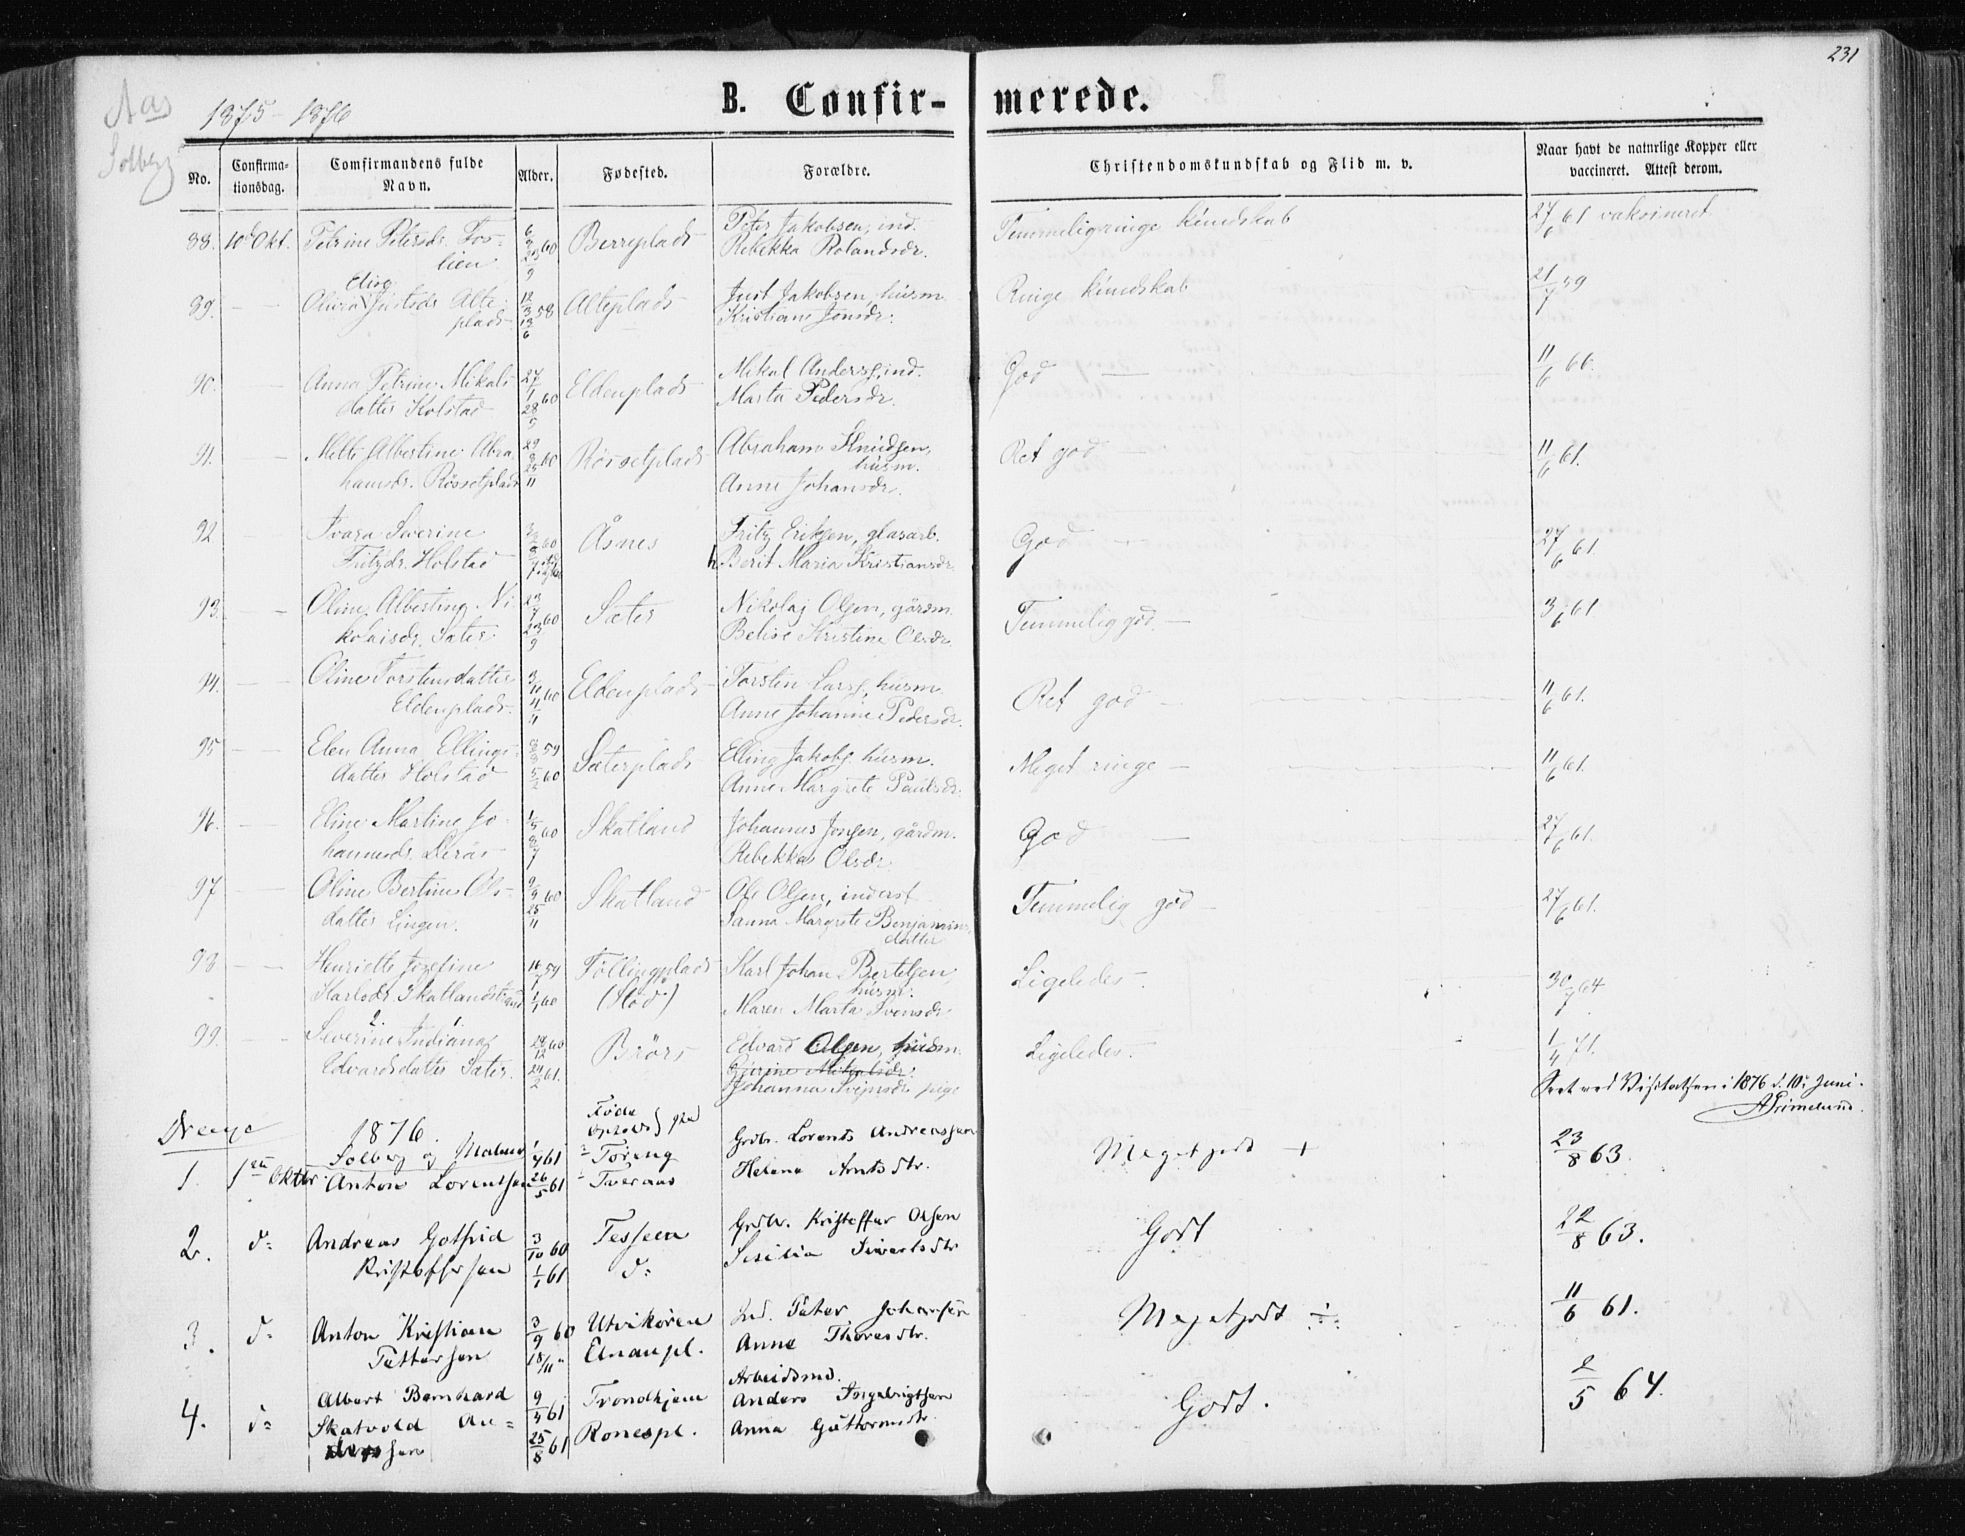 231
Aas
Solberg
1875 - 1876
B. Confir- merede.
No. Confirma-tionsdag. Comfirmandens fulde Navn. Alder. Fødested. Forældre. Christendomskundskab og Flid m. v. Naar havt de naturlige Kopper eller vaccineret. Attest derom.
88. 10 Okt. Petrine Petersdr. Fos- 6/3 60 Berreplads Peter Jakobsen, ind. Temmelig ringe kundskab 27/6 61 vaksineret
lien 23/9 Rebekka Rolandsdr.
Elise
89. — Olivia Justsdr. Alte- 12/3 58 Alteplads Just Jakobsen, husm. Ringe kundskab 21/7 59
plads 13/6 Kristiane Jonsdr.
90. — Anna Petrine Mikals- 27/1 60 Eldenplads Mikal Anders., ind. God — 11/6 66.
datter Kolstad 28/5 Marta Pedersdr.
91. — Mette Albertine Abra- Røssetplads Abraham Knudsen, Ret god — 11/6 61.
hamsdr. Røssetplads 25/11 husm.
Anne Johansdr.
92 — Severine Åsnes Fritz Eriksen, glasarb. God — 27/6 61.
Fritzdr. Holstad Berit Maria Kristiansdr.
93. — Oline Albertine Ni- 23/7 60 Sæter Nikolaj Olsen, gårdm. Temmelig god — 3/6 61
kolaisdr. Sæter 23/9 Kristine Olsdr.
94. — Oline Torstensdatter 60 Eldenplads Torsten Lars., husm. Ret god — 11/6 61.
Eldenplads. Anne Johanne Pedersdr.
95 — Elen Anna Ellings- 59 Sæterplads Elling Jakobs. husm. Meget ringe — 11/6 61.
datter Holstad 5/2 60 Anne Margrete Paulsdr.
96. — Eline Martine Jo- 1/5 60 Skatland Johannes Jonsen, gårdm. God — 27/6 61.
hannesdr. 8/7 Rebekka Olsdr.
97 — Oline Bertine Ols- 9/9 60 Skatland Ole Olsen, inderst Temmelig god — 27/6 61.
datter Lingen. 25/11 Sanna Margrete Benjamins-
datter
98 — Henriette Josefine 59 Føllingplads Karl Johan Bertelsen, Ligeledes. 30/7 64
Karlsdr. Skatlandstrand 1/1 60 (Stod) husm.
Maren Marta Svensdr.
2. 1
99. — Severine Indiana 60 Brørs Edvard Olsen, husm. Ligeledes. 1/4 71.
Edvardsdatter Sæter. 24/2 61. Mikalsdr.
Johanna Svensdr. pige
Seet ved Visitatsen i 1876 d. 10. Juni.
AGrimelund.
Drenge 1876. Føde
Solberg og Malm 1/4 61 Tøring Grdbr. Lorents Andreassen Meget godt + 23/8 63.
1. 1ste Oktbr. Anton Lorentsen 26/5 61 Tveraas Helena Arntsdtr.
2. d= Andreas Gotfrid 3/10 60 Grdbr. Kristoffer Olsen Godt 22/8 63.
Kristoffersen 1/1 61 d= Sisilia Sivertsdtr
3. d= Anton Kristian 3/9 60 Utvikøren Ind. Peter Johansen Meget godt ÷ 11/6 61.
Pettersen 18/11 Elnanpl. Anne Thoresdtr.
Arbeidsmd.
4. d= Albert Bernhard 9/4 61 Trondhjem Anders Ingebrigtsen Godt. 2/5 64.
Skatvold An- 25/8 61 Ronespl. Anna Guttormsdtr.
dersen